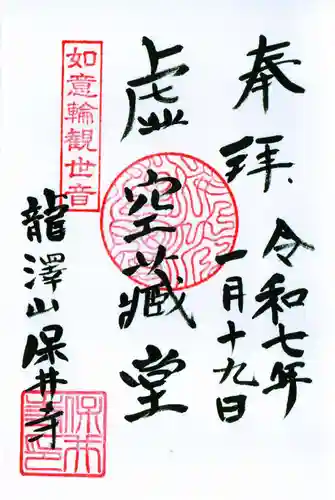 奉拜
令和七年
一月十九日
虚空藏堂
如意輪觀世音
龍澤山保井寺